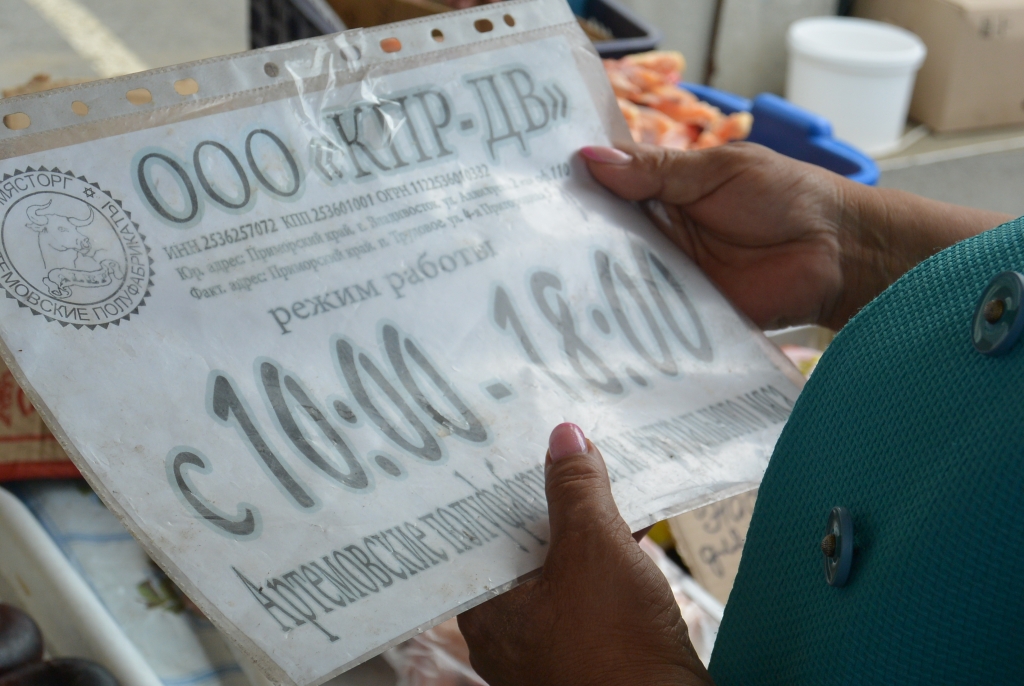 ООО «КПР-ДВ»
МЯСТОРГ
АРТЕМОВСКИЕ ПОЛУФАБРИКАТЫ
ИНН 2536257072 КПП 253601001 ОГРН
Юр. адрес: Приморский край, г. Владивосток, ул.
Факт. адрес: Приморский край, п. Трудовое, ул. 4-я
режим работы
с 10:00 - 18:00
Артемовские из натурального мяса